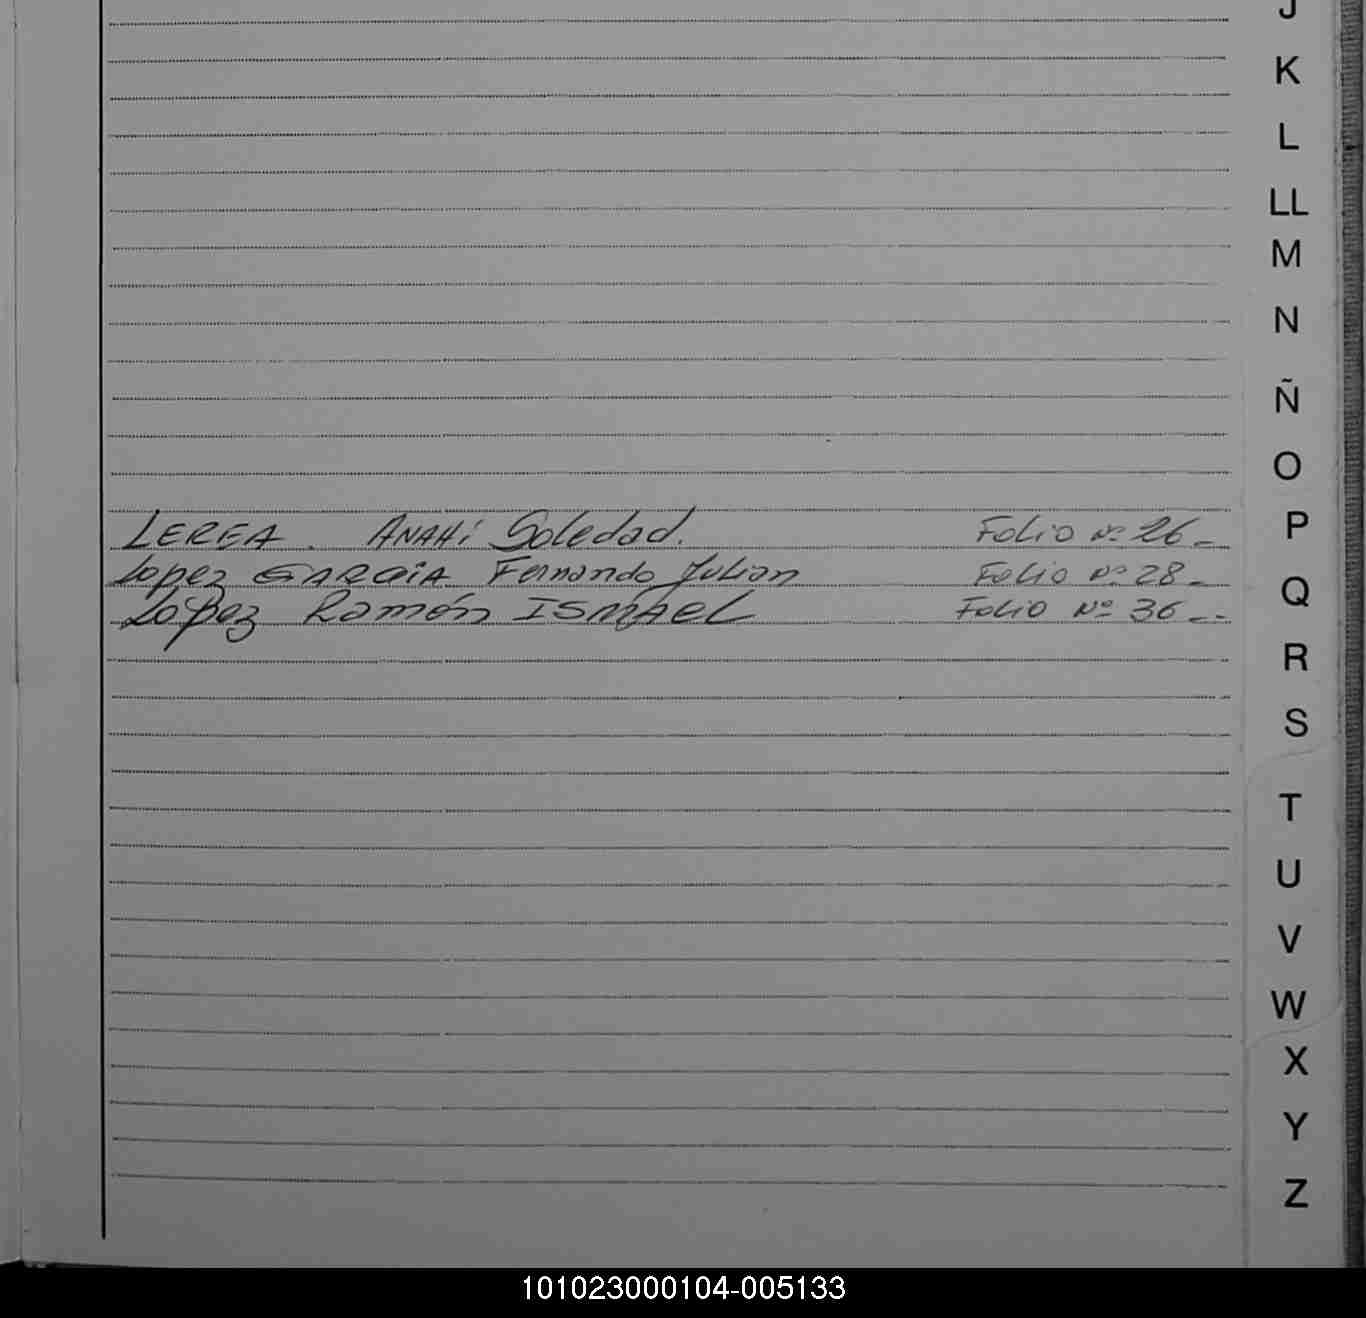 J
K
L
LL
M
N
Ñ
O
LEREA. ANAHí Soledad. Folio Nº 26 -
P
Lopez GARCiA Fernando Julian Folio Nº 28 -
Q
López Ramón ISMAEL Folio Nº 36 - -
R
S
T
U
V
W
X
Y
Z
101023000104-005133